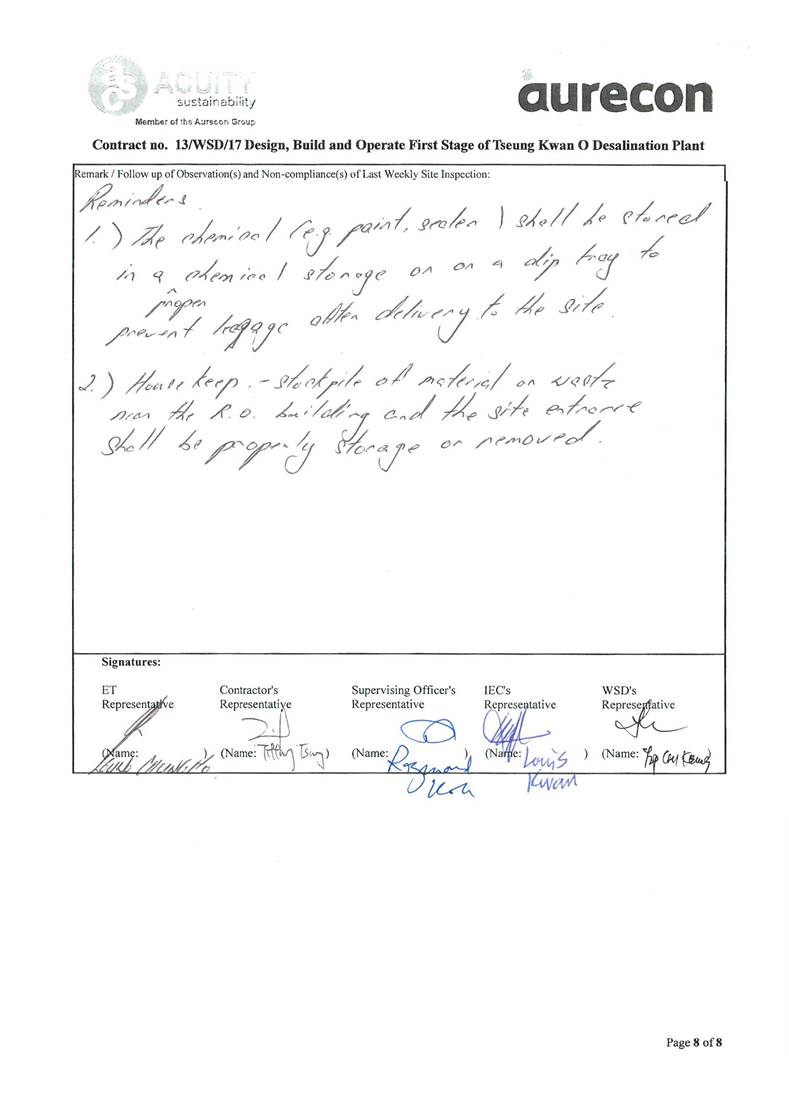 asc ACUITY
sustainability
Member of the Aurecon Group
aurecon
Contract no. 13/WSD/17 Design, Build and Operate First Stage of Tseung Kwan O Desalination Plant
Remark / Follow up of Observation(s) and Non-compliance(s) of Last Weekly Site Inspection:
Reminders.
1.) The chemical (e.g. paint, sealer ) shall be stored
in a chemical storage or on a dip tray to
^ proper
prevent leagage after delivery to the site.
2.) House keep. - stockpile of material or waste
near the R.O. building and the site entrance
shall be properly storage or removed.
Signatures:
ET Representative
Contractor's Representative
Supervising Officer's Representative
IEC's Representative
WSD's Representative
(Name: )
(Name: Tiffany Tsang)
(Name: Raymond )
(Name: Louis Kwan )
(Name: )
Page 8 of 8